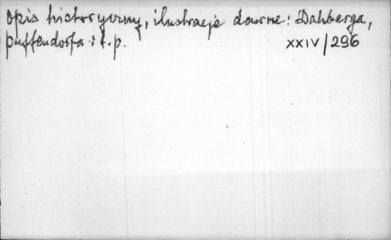 opis historyczny, ilustracje dawne: Dahberga,
puffendorfa i t.p. XXIV/296